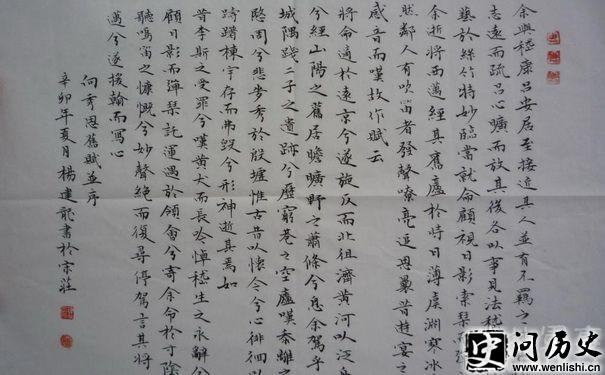 余與嵇康呂安居至接近其人並有不羈之
志遠而疏呂心曠而放其後各以事見法嵇
藝於絲竹特妙臨當就命顧視日影索琴
余逝將西邁經其舊廬於時日薄虞淵寒冰
然鄰人有吹笛者發聲嘹亮追思曩昔遊宴之
感音而嘆故作賦云
將命適於遠京兮遂旋反而北徂濟黃河以泛舟
兮經山陽之舊居瞻曠野之蕭條兮息余駕乎
城隅踐二子之遺跡兮歷窮巷之空廬嘆黍離之
愍周兮悲麥秀於殷墟惟古昔以懷今兮心徘徊以
躊躇棟宇存而弗毀兮形神逝其焉如
昔李斯之受罪兮嘆黃犬而長吟悼嵇生之永辭兮
顧日影而彈琴託運遇於領會兮寄余命於寸陰
聽鳴笛之慷慨兮妙聲絕而復尋停駕言其將
邁兮遂援翰而寫心
向秀思舊賦並序
辛卯年夏月楊建龍書於莊
问历史
www.wenlishi.cn